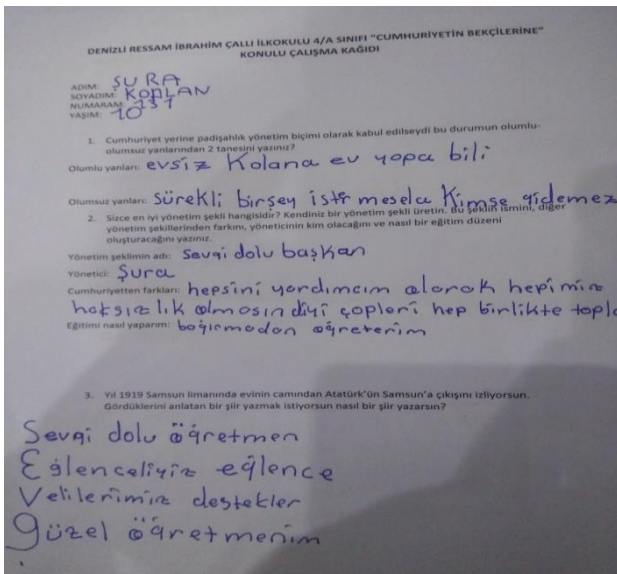 DENİZLİ RESSAM İBRAHİM ÇALLI İLKOKULU 4/A SINIFI "CUMHURİYETİN BEKÇİLERİNE"
KONULU ÇALIŞMA KAĞIDI
ADIM: ŞURA
SOYADIM: KAPLAN
NUMARAM: 1131
YAŞIM: 10
1. Cumhuriyet yerine padişahlık yönetim biçimi olarak kabul edilseydi bu durumun olumlu-
olumsuz yanlarından 2 tanesini yazınız?
Olumlu yanları: evsiz Kalana ev yapa bili
Olumsuz yanları: Sürekli birşey istr mesela Kimse gidemez
2. Sizce en iyi yönetim şekli hangisidir? Kendiniz bir yönetim şekli üretin. Bu şeklin ismini, diğer
yönetim şekillerinden farkını, yöneticinin kim olacağını ve nasıl bir eğitim düzeni
oluşturacağını yazınız.
Yönetim şeklimin adı: Sevgi dolu başkan
Yönetici: Şura
Cumhuriyetten farkları: hepsini yardımcım alarak hepimize
haksızlık olmasın diyi çöpleri hep birlikte topla
Eğitimi nasıl yaparım: bağırmadan öğretirim
3. Yıl 1919 Samsun limanında evinin camından Atatürk'ün Samsun'a çıkışını izliyorsun.
Gördüklerini anlatan bir şiir yazmak istiyorsun nasıl bir şiir yazarsın?
Sevgi dolu öğretmen
Eğlenceliyiz eğlence
Velilerimiz destekler
Güzel öğretmenim